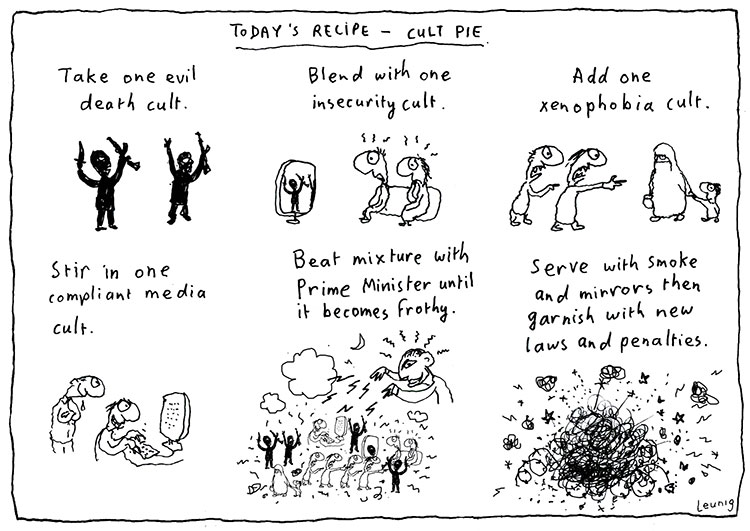 TODAY'S RECIPE – CULT PIE.
Take one evil
death cult.
Blend with one
insecurity cult.
Add one
xenophobia cult.
Stir in one
compliant media
cult.
Beat mixture with
Prime Minister until
it becomes frothy.
Serve with smoke
and mirrors then
garnish with new
laws and penalties.
Leunig